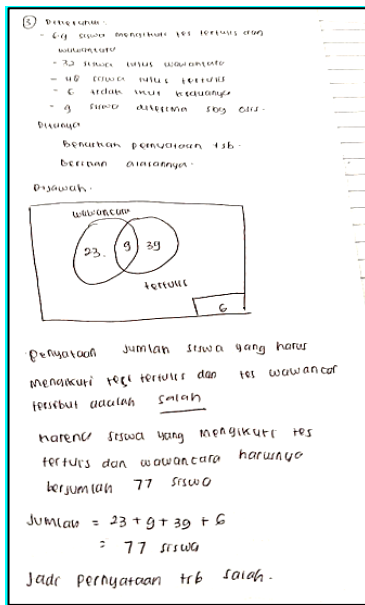 ③ Diketahui :
- 69 siswa mengikuti tes tertulis dan
wawancara
- 32 siswa lulus wawancara
- 48 siswa lulus tertulis
- 6 tidak ikut keduanya
- 9 siswa diterima sbg osis.
Ditanya
Benarkah pernyataan tsb.
berikan alasannya.
Dijawab.
wawancara
23. 9 39
tertulis
6
Penyataan Jumlah siswa yang harus
mengikuti tes tertulis dan tes wawancar
tersebut adalah salah
karena siswa yang mengikuti tes
tertulis dan wawancara harusnya
berjumlah 77 siswa
Jumlah = 23 + 9 + 39 + 6
= 77 siswa
Jadi pernyataan tsb salah.